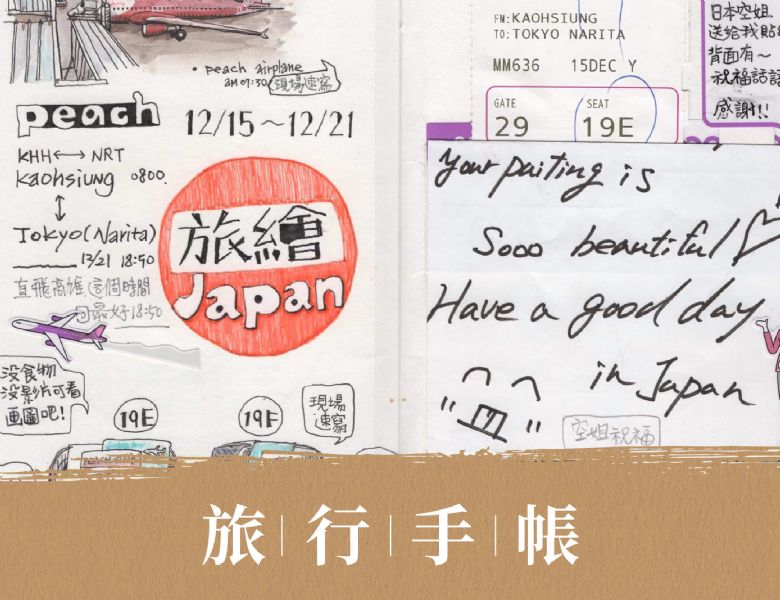 • peach airplane
AM 07:30 現場速寫
peach
12/15～12/21
KHH←→NRT
Kaohsiung 0800.
↕
Tokyo(Narita)
18:50
直飛高雄,這個時間
最好18:50
旅繪
Japan
没食物
没影片可看
画圖吧!
19E
19E
現場
速寫
FM:KAOHSIUNG
TO:TOKYO NARITA
MM636 15DEC Y
GATE
29
SEAT
19E
日本空姐
送給我貼紙
背面有～
祝福話語
感謝!!
Your paiting is
Sooo beautiful
Have a good day
in Japan
空姐祝福
旅行手帳